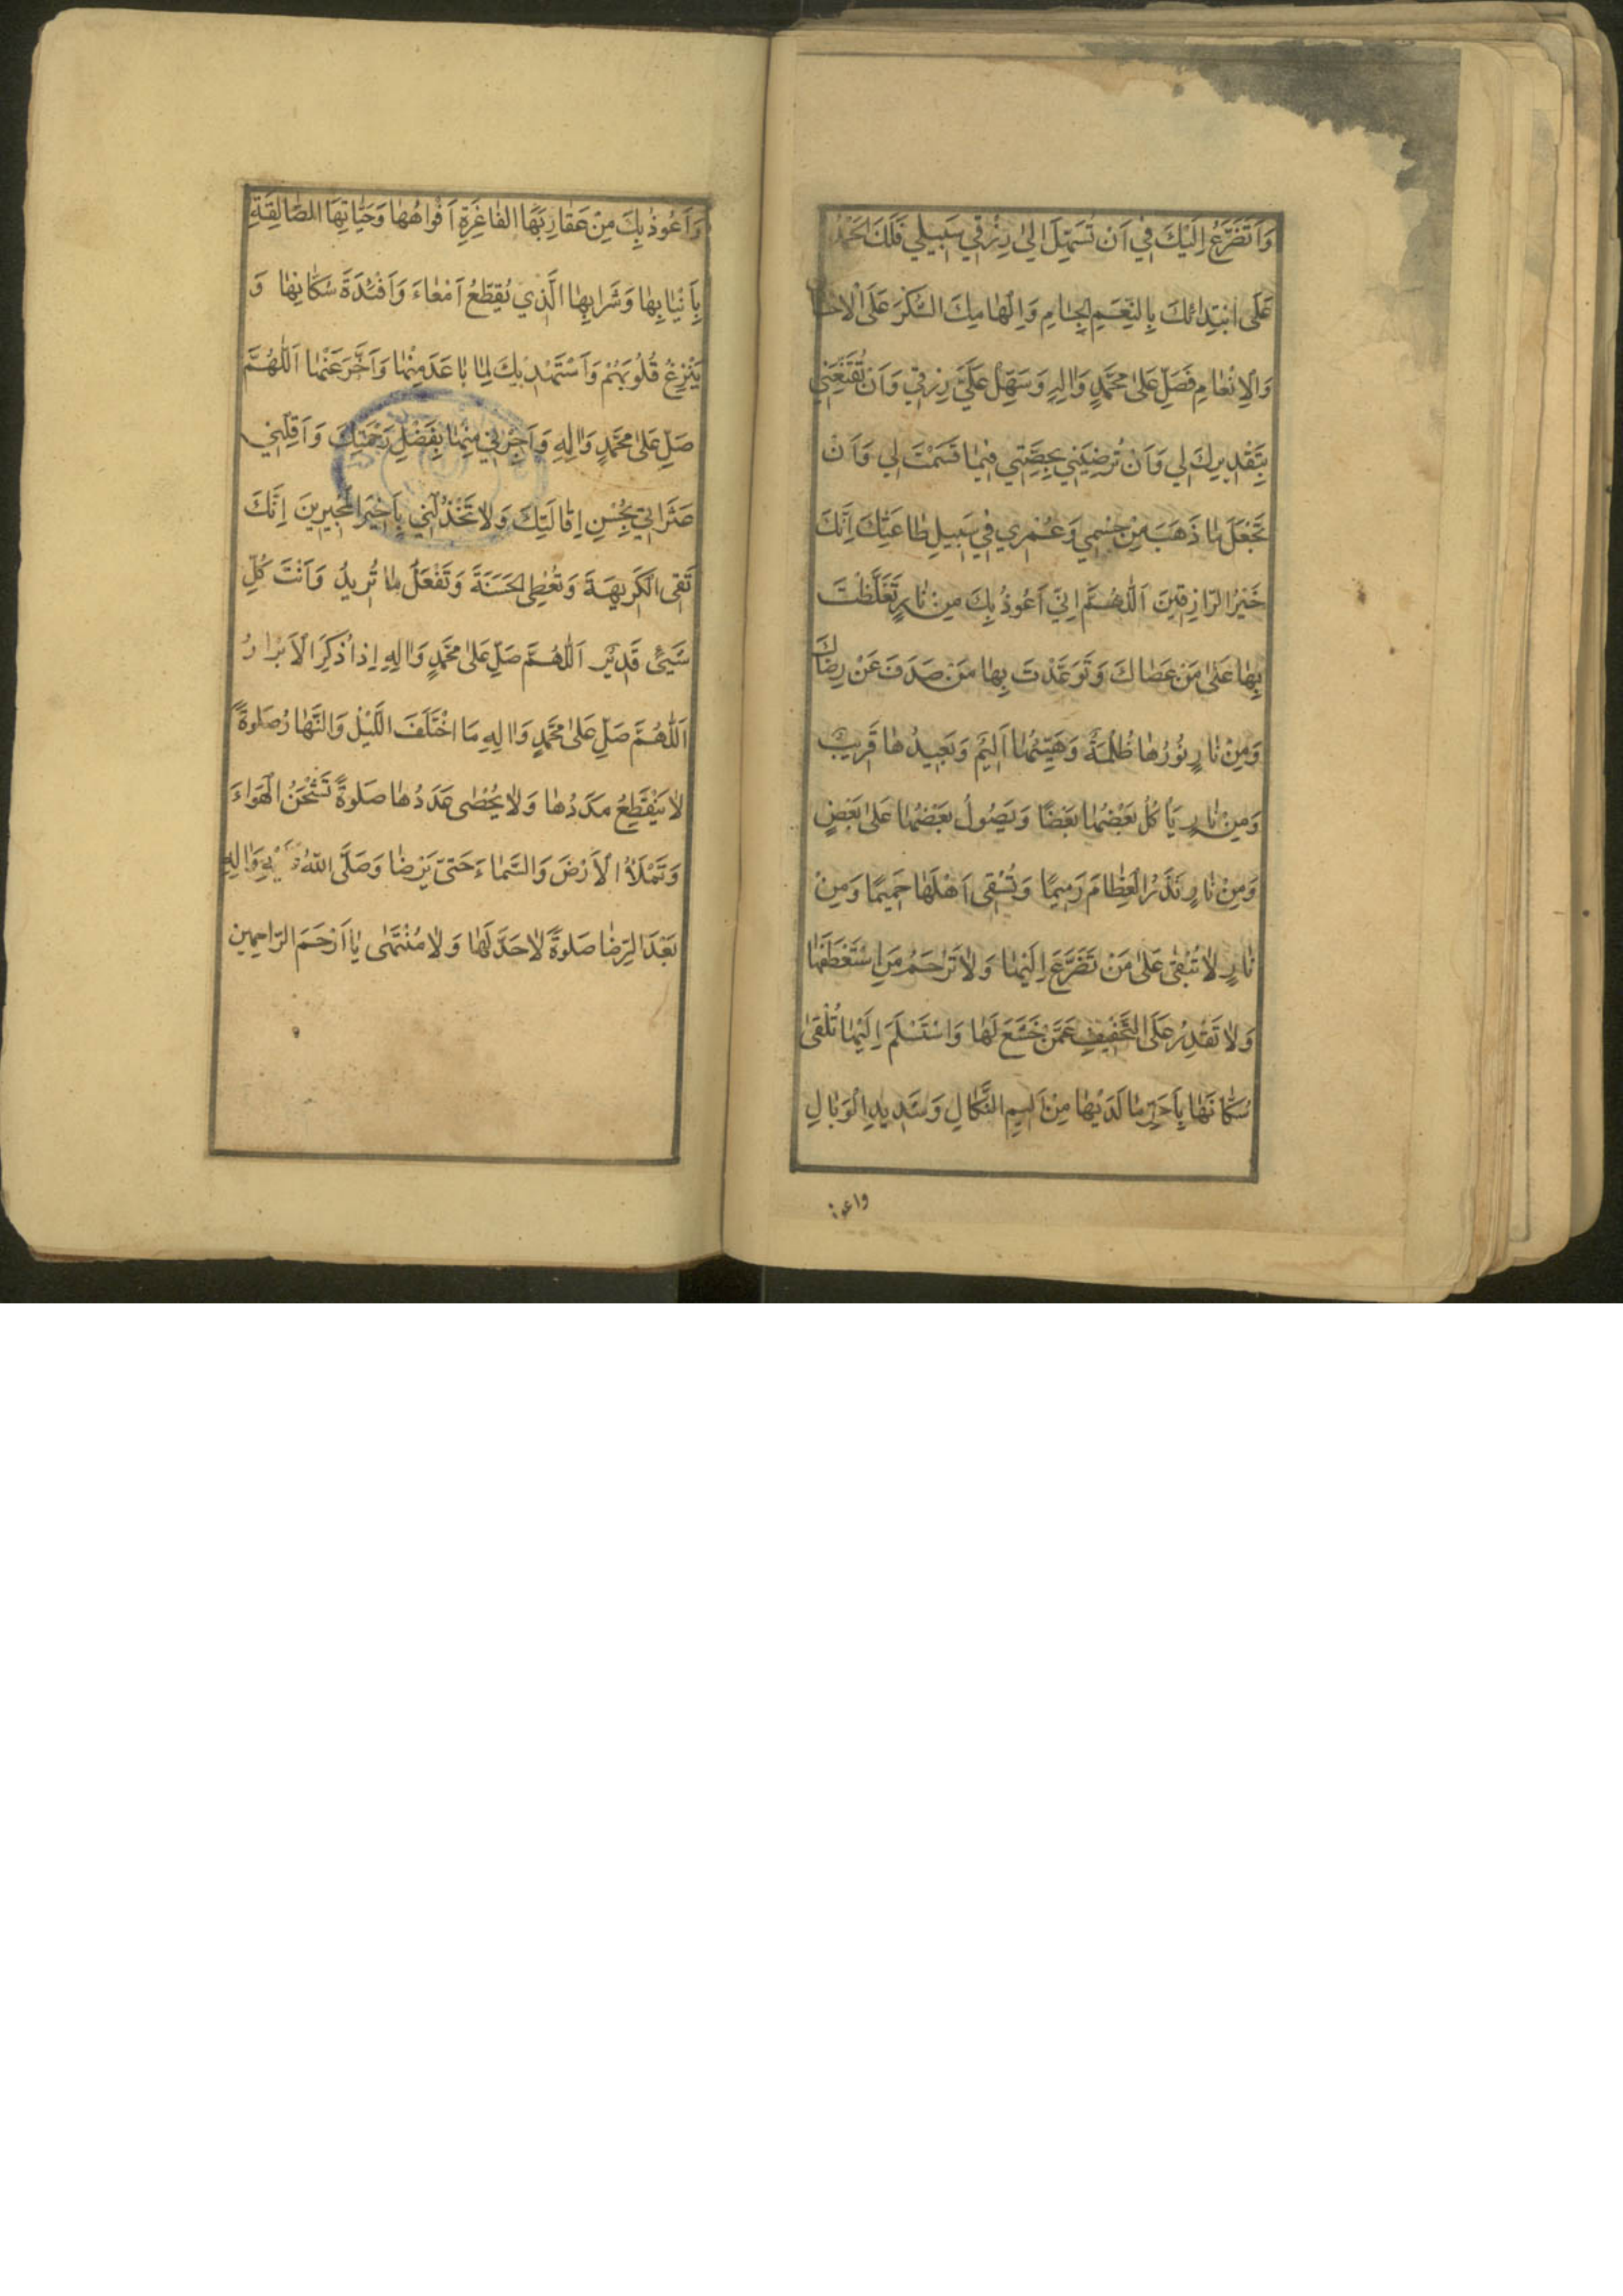 وَاَتَضَرَّعُ اِلَيْكَ فِي اَنْ تُسَهِّلَ اِلىٰ رِزْقِي سَبِيلِي فَلَكَ الْحَمْدُ
عَلَى ابْتِدٰائِكَ بِالنِّعَمِ الْجِسٰامِ وَاِلْهٰامِكَ الشُّكْرَ عَلَى الْاِحْسٰانِ
وَالْاِنْعٰامِ فَصَلِّ عَلىٰ مُحَمَّدٍ وَاٰلِهِ وَسَهِّلْ عَلَيَّ رِزْقِي وَاَنْ تُقَنِّعَنِي
بِتَقْدِيرِكَ لِي وَاَنْ تُرْضِيَنِي بِحِصَّتِي فِيمٰا قَسَمْتَ لِي وَاَنْ
تَجْعَلَ مٰا ذَهَبَ مِنْ جِسْمِي وَعُمْرِي فِي سَبِيلِ طٰاعَتِكَ اِنَّكَ
خَيْرُ الرّٰازِقِينَ اَللّٰهُمَّ اِنِّي اَعُوذُ بِكَ مِنْ نٰارٍ تَغَلَّظْتَ
بِهٰا عَلىٰ مَنْ عَصٰاكَ وَتَوَعَّدْتَ بِهٰا مَنْ صَدَفَ عَنْ رِضٰاكَ
وَمِنْ نٰارٍ نُورُهٰا ظُلْمَةٌ وَهَيِّنُهٰا اَلِيمٌ وَبَعِيدُهٰا قَرِيبٌ
وَمِنْ نٰارٍ يَأْكُلُ بَعْضُهٰا بَعْضًا وَيَصُولُ بَعْضُهٰا عَلىٰ بَعْضٍ
وَمِنْ نٰارٍ تَذَرُ الْعِظٰامَ رَمِيمًا وَتُسْقِي اَهْلَهٰا حَمِيمًا وَمِنْ
نٰارٍ لٰا تُبْقِي عَلىٰ مَنْ تَضَرَّعَ اِلَيْهٰا وَلٰا تَرْحَمُ مَنِ اسْتَعْطَفَهٰا
وَلٰا تَقْدِرُ عَلَى التَّخْفِيفِ عَمَّنْ خَشَعَ لَهٰا وَاسْتَسْلَمَ اِلَيْهٰا تُلْقىٰ
سُكّٰانَهٰا بِاَحَرِّ مٰا لَدَيْهٰا مِنْ اَلِيمِ النَّكٰالِ وَشَدِيدِ الْوَبٰالِ
واعوذ
وَاَعُوذُ بِكَ مِنْ عَقٰارِبِهَا الْفٰاغِرَةِ اَفْوٰاهُهٰا وَحَيّٰاتِهَا الصّٰالِقَةِ
بِاَنْيٰابِهٰا وَشَرٰابِهٰا الَّذِي يُقَطِّعُ اَمْعٰاءَ وَاَفْئِدَةَ سُكّٰانِهٰا وَ
يَنْزِعُ قُلُوبَهُمْ وَاَسْتَهْدِيكَ لِمٰا بٰاعَدَ مِنْهٰا وَاَخَّرَ عَنْهٰا اَللّٰهُمَّ
صَلِّ عَلىٰ مُحَمَّدٍ وَاٰلِهِ وَاَجِرْنِي مِنْهٰا بِفَضْلِ رَحْمَتِكَ وَاَقِلْنِي
عَثَرٰاتِي بِحُسْنِ اِقٰالَتِكَ وَلٰا تَخْذُلْنِي يٰاخَيْرَ الْمُجِيرِينَ اِنَّكَ
تَقِى الْكَرِيهَةَ وَتُعْطِى الْحَسَنَةَ وَتَفْعَلُ مٰا تُرِيدُ وَاَنْتَ كُلِّ
شَيْئٍ قَدِيرٌ اَللّٰهُمَّ صَلِّ عَلىٰ مُحَمَّدٍ وَاٰلِهِ اِذٰا ذُكِرَ الْاَبْرٰارُ
اَللّٰهُمَّ صَلِّ عَلىٰ مُحَمَّدٍ وَاٰلِهِ مَا اخْتَلَفَ اللَّيْلُ وَالنَّهٰارُ صَلٰوةً
لٰا يَنْقَطِعُ مَدَدُهٰا وَلٰا يُحْصٰى عَدَدُهٰا صَلٰوةً تَشْحَنُ الْهَوٰاءَ
وَتَمْلَأُ الْاَرْضَ وَالسَّمٰاءَ حَتّىٰ يَرْضٰا وَصَلَّى اللّٰهُ عَلَيْهِ وَاٰلِهِ
بَعْدَ الرِّضٰا صَلٰوةً لٰا حَدَّ لَهٰا وَلٰا مُنْتَهٰى يٰا اَرْحَمَ الرّٰاحِمِينَ